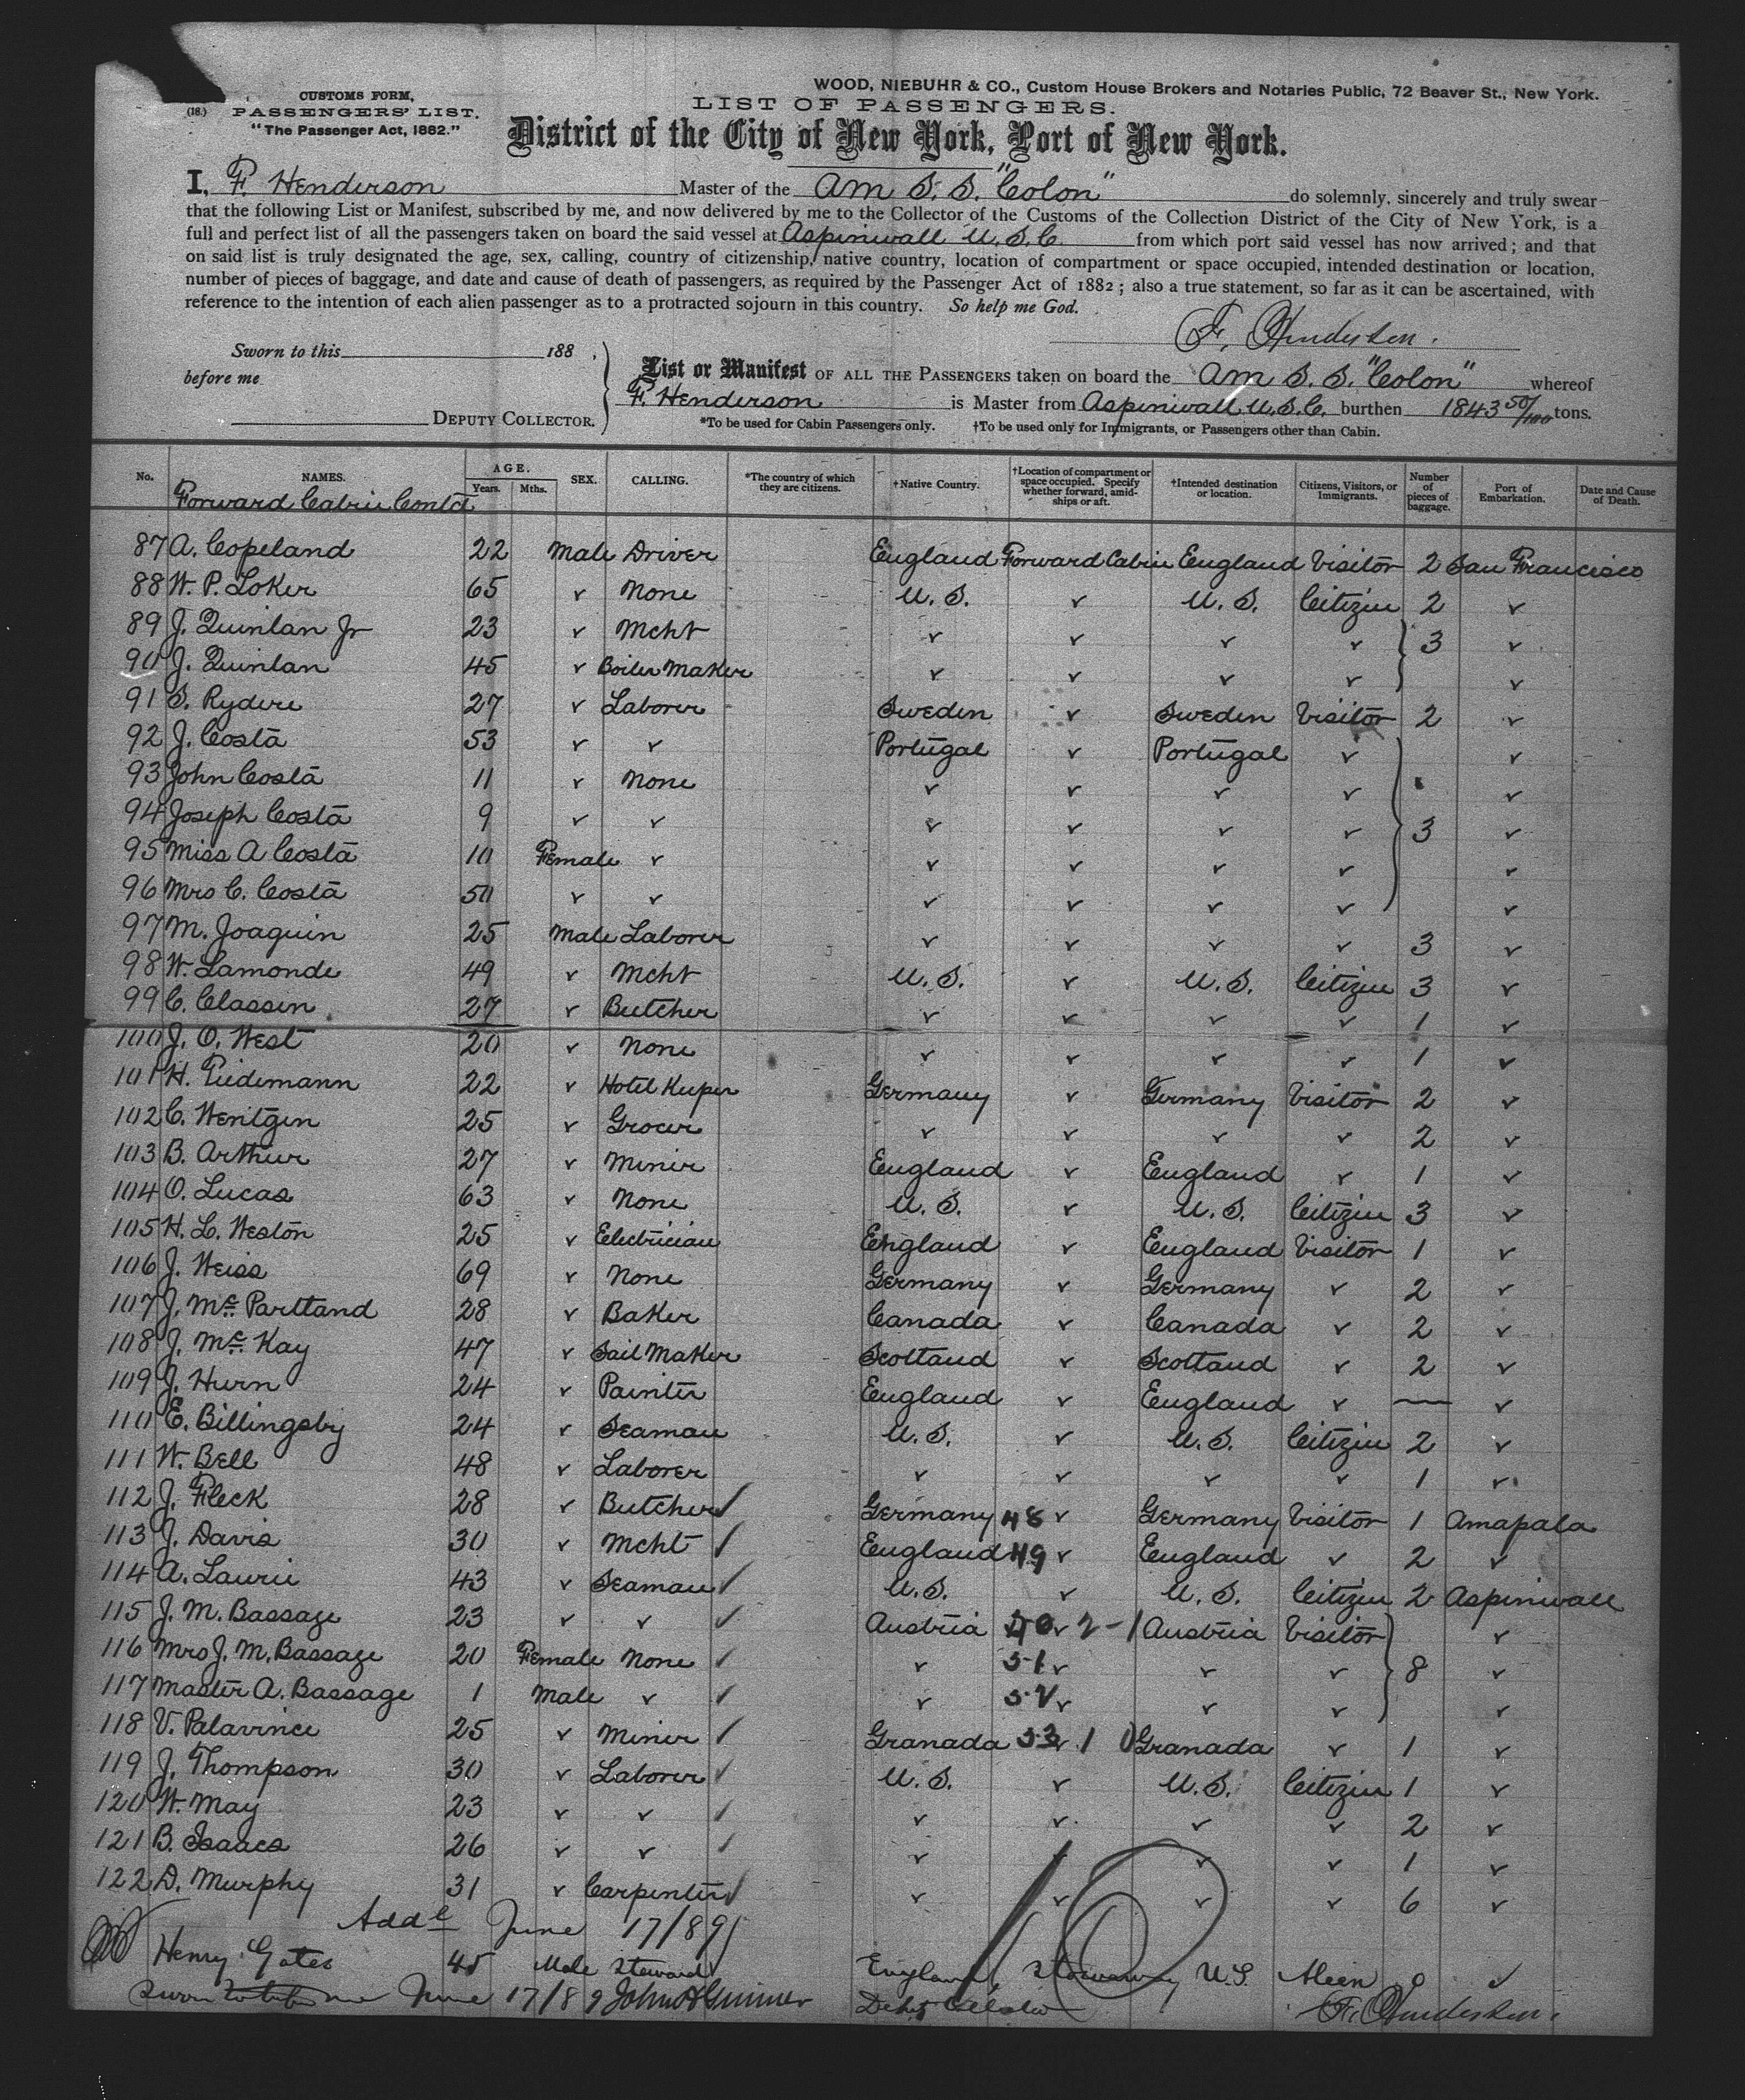 WOOD, NIEBUHR & CO., Custom House Brokers and Notaries Public, 72 Beaver St., New York.
(18.) CUSTOMS FORM,
PASSENGERS' LIST.
"The Passenger Act, 1882."
LIST OF PASSENGERS.
District of the City of New York, Port of New York.
I, F. Henderson Master of the Am S. S. "Colon" do solemnly, sincerely and truly swear
that the following List or Manifest, subscribed by me, and now delivered by me to the Collector of the Customs of the Collection District of the City of New York, is a
full and perfect list of all the passengers taken on board the said vessel at Aspinwall U.S.C. from which port said vessel has now arrived; and that
on said list is truly designated the age, sex, calling, country of citizenship, native country, location of compartment or space occupied, intended destination or location,
number of pieces of baggage, and date and cause of death of passengers, as required by the Passenger Act of 1882; also a true statement, so far as it can be ascertained, with
reference to the intention of each alien passenger as to a protracted sojourn in this country. So help me God.
F. Henderson.
Sworn to this 188 .
before me
DEPUTY COLLECTOR.
List or Manifest OF ALL THE PASSENGERS taken on board the Am S. S. "Colon" whereof
F. Henderson is Master from Aspinwall U.S.C. burthen 1843 50/100 tons.
*To be used for Cabin Passengers only. †To be used only for Immigrants, or Passengers other than Cabin.
No. NAMES. AGE. Years. Mths. SEX. CALLING. *The country of which they are citizens. †Native Country. †Location of compartment or space occupied. Specify whether forward, amidships or aft. †Intended destination or location. Citizens, Visitors, or Immigrants. Number of pieces of baggage. Port of Embarkation. Date and Cause of Death.
Forward Cabin Contd
87 A. Copeland 22 Male Driver England Forward Cabin England Visitor 2 San Francisco
88 W. P. Loker 65 ✓ None U. S. ✓ U. S. Citizen 2 ✓
89 J. Quinlan Jr 23 ✓ Mcht ✓ ✓ ✓ ✓ 3 ✓
90 J. Quinlan 45 ✓ Boiler Maker ✓ ✓ ✓ ✓ ✓
91 S. Rydere 27 ✓ Laborer Sweden ✓ Sweden Visitor 2 ✓
92 J. Costa 53 ✓ ✓ Portugal ✓ Portugal ✓ ✓
93 John Costa 11 ✓ None ✓ ✓ ✓ ✓ ✓
94 Joseph Costa 9 ✓ ✓ ✓ ✓ ✓ ✓ 3 ✓
95 Miss A Costa 10 Female ✓ ✓ ✓ ✓ ✓ ✓
96 Mrs C. Costa 50 ✓ ✓ ✓ ✓ ✓ ✓ ✓
97 M. Joaquin 25 Male Laborer ✓ ✓ ✓ ✓ 3 ✓
98 W. Lamonde 49 ✓ Mcht U. S. ✓ U. S. Citizen 3 ✓
99 C. Classin 27 ✓ Butcher ✓ ✓ ✓ ✓ 1 ✓
100 J. O. West 20 ✓ None ✓ ✓ ✓ ✓ 1 ✓
101 H. 22 ✓ Hotel Keeper Germany ✓ Germany Visitor 2 ✓
102 C. Wentgen 25 ✓ Grocer ✓ ✓ ✓ ✓ 2 ✓
103 B. Arthur 27 ✓ Miner England ✓ England ✓ 1 ✓
104 O. Lucas 63 ✓ None U. S. ✓ U. S. Citizen 3 ✓
105 H. L. Weston 25 ✓ Electrician England ✓ England Visitor 1 ✓
106 J. Weiss 69 ✓ None Germany ✓ Germany ✓ 2 ✓
107 J. Mc Partland 28 ✓ Baker Canada ✓ Canada ✓ 2 ✓
108 J. Mc Kay 47 ✓ Sail Maker Scotland ✓ Scotland ✓ 2 ✓
109 J. Hurn 24 ✓ Painter England ✓ England ✓ — ✓
110 E. Billingsby 24 ✓ Seaman U. S. ✓ U. S. Citizen 2 ✓
111 W. Bell 48 ✓ Laborer ✓ ✓ ✓ ✓ 1 ✓
112 J. Fleck 28 ✓ Butcher ✓ Germany 48 ✓ Germany Visitor 1 Amapala
113 J. Davis 30 ✓ Mcht ✓ England 49 ✓ England ✓ 2 ✓
114 A. Laurie 43 ✓ Seaman ✓ U. S. ✓ U. S. Citizen 2 Aspinwall
115 J. M. Bassage 23 ✓ ✓ ✓ Austria 50 ✓ 2 - 1 Austria Visitor ✓
116 Mrs J. M. Bassage 20 Female None ✓ ✓ 51 ✓ ✓ ✓ 8 ✓
117 Master A. Bassage 1 Male ✓ ✓ ✓ 52 ✓ ✓ ✓ ✓
118 V. Palavince 25 ✓ Miner ✓ Granada 53 ✓ 1 0 Granada ✓ 1 ✓
119 J. Thompson 30 ✓ Laborer ✓ U. S. ✓ U. S. Citizen 1 ✓
120 W. May 23 ✓ ✓ ✓ ✓ ✓ ✓ ✓ 2 ✓
121 B. Isaacs 26 ✓ ✓ ✓ ✓ ✓ ✓ ✓ 1 ✓
122 D. Murphy 31 ✓ Carpenter ✓ ✓ ✓ ✓ ✓ 6 ✓
Addl June 17/89
Henry Gates 45 Male Steward England Stowaway U.S. Alien 0 ✓
Sworn to before me June 17/89 F. Henderson.